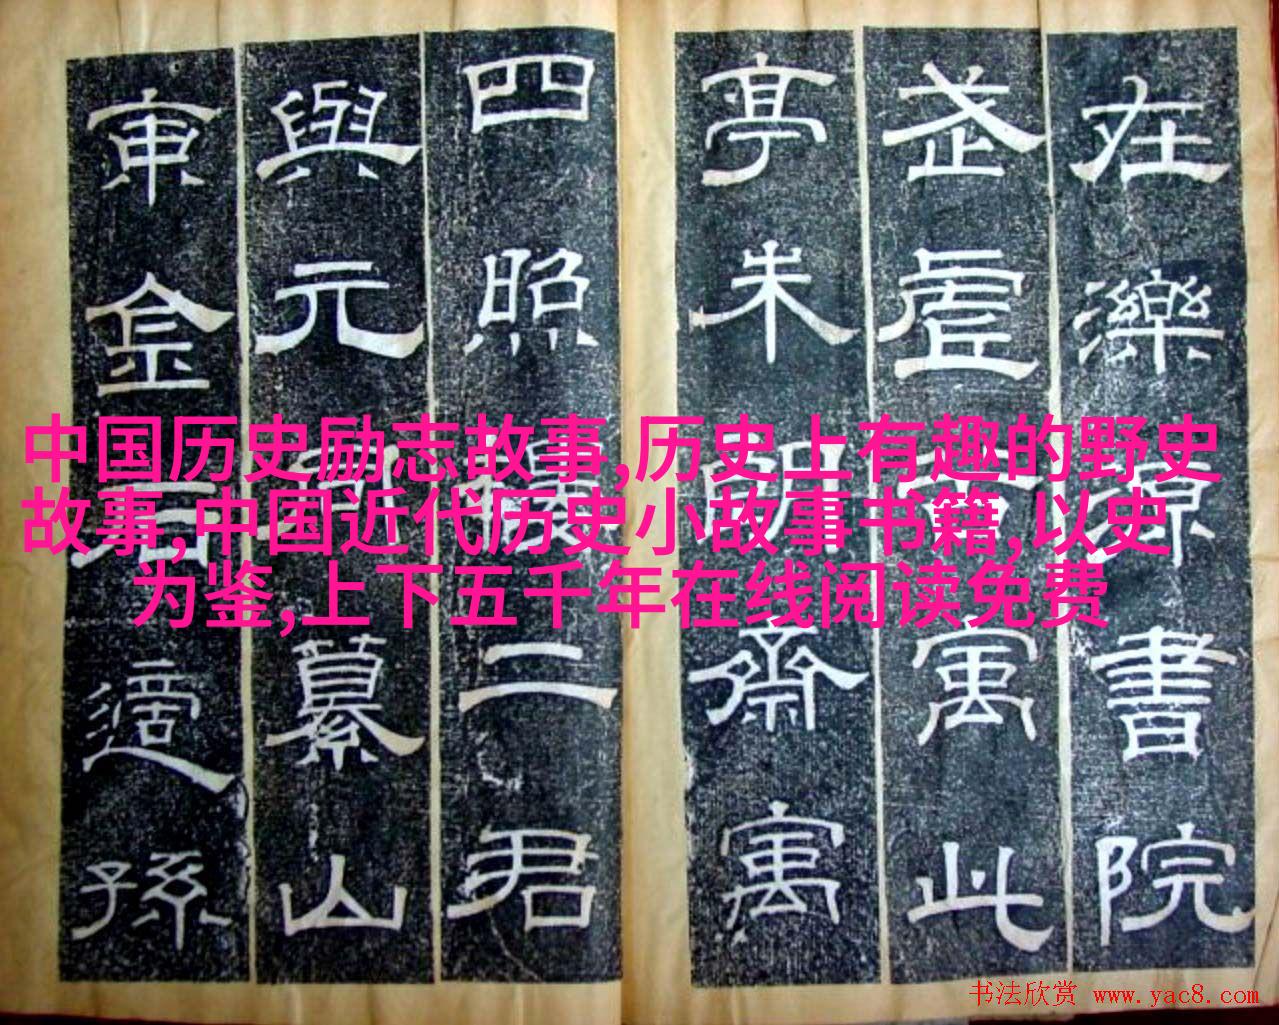 在濼源書院
武虛寓此
亭朱朗齋寓
四照樓二君
與元纂山
東金石適孫
中国历史励志故事,历史上有趣的野史
故事,中国近代历史小故事书籍,以史
为鉴,上下五千年在线阅读免费
书法欣赏 www.yac8.com